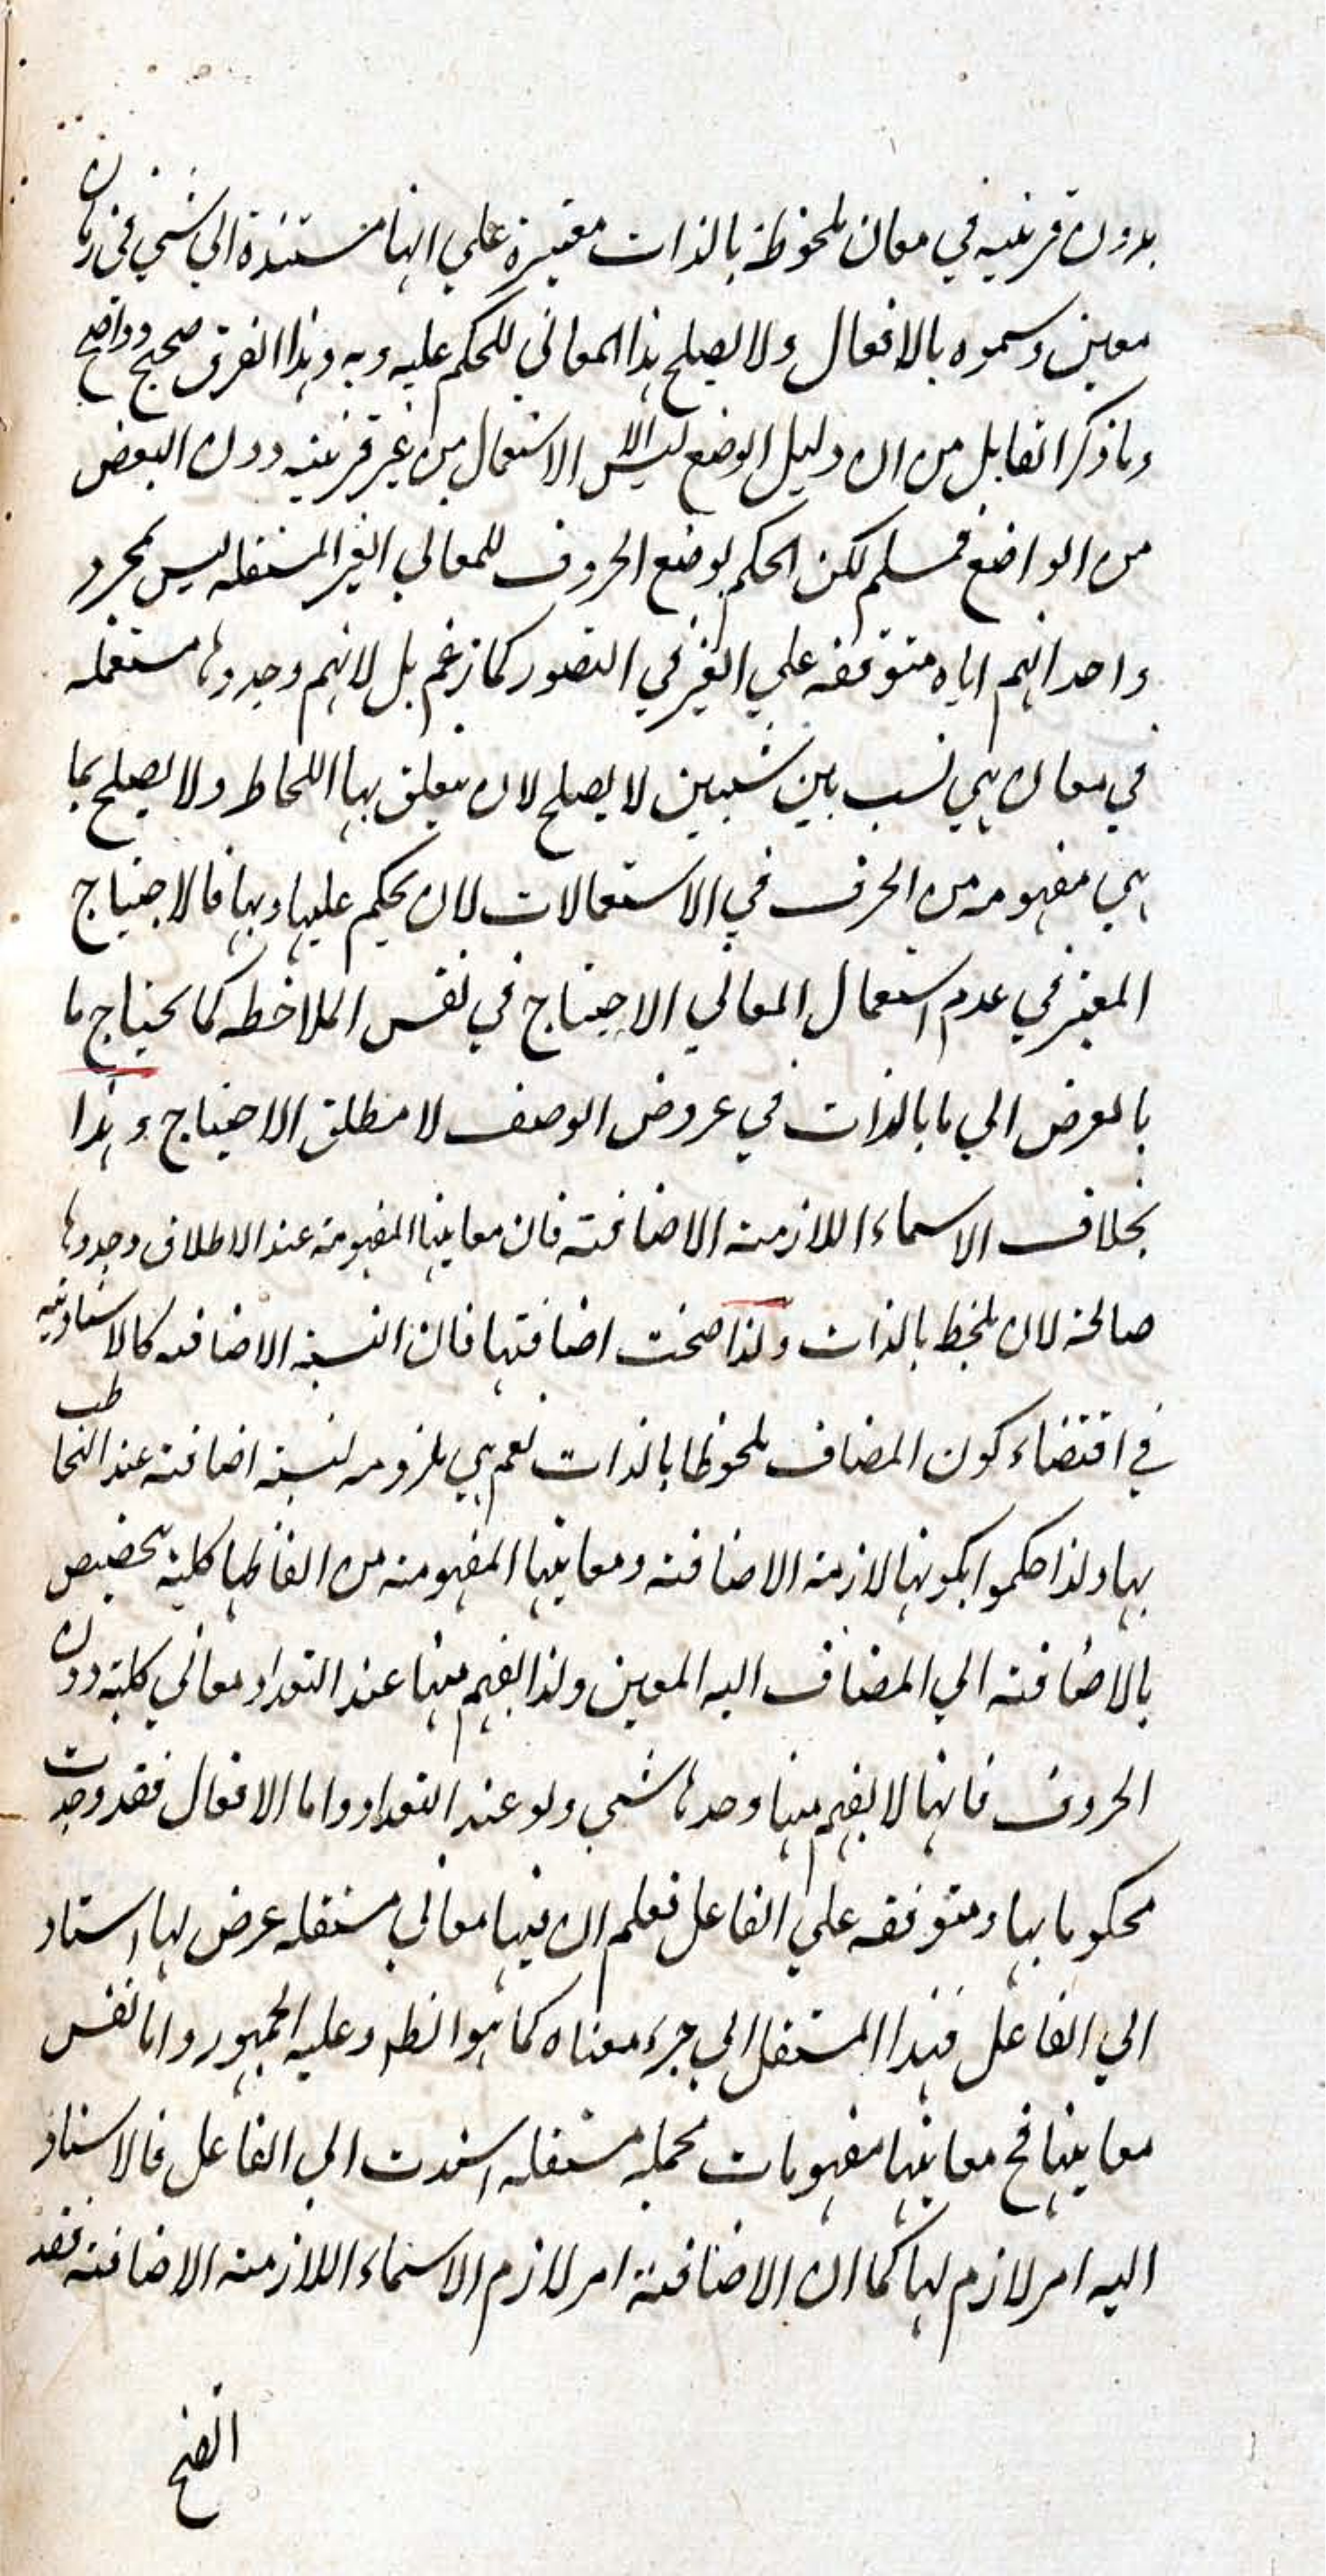 بدون قرينيه في معان ملحوظة بالذات معتبرة علي انها مستندة الي شيء في زمان
معين وسموه بالافعال ولا يصلح هذا المعاني للحكم عليه وبه وهذا الفرق صحيح وواضح
وما ذكر القايل من ان دليل الوضع ليس الا الاستعمال من غير قرينه دون البعض
من الواضع فمسلم لكن الحكم بوضع الحروف للمعاني الغير المستقله ليس بمجرد
واحدانهم اياه متوقفه علي الغير في التصور كما زعم بل لانهم وجدوها مستعمله
في معان هي نسب بين شيئين لا يصلح لان يتعلق بها اللحاظ ولا يصلح بما
هي مفهومه من الحرف في الاستعمالات لان يحكم عليها وبها فالاحتياج
المعتبر في عدم استعمال المعاني الاحتياج في نفس الملاحظه كما يحتاج ما
بالعرض الي ما بالذات في عروض الوصف لا مطلق الاحتياج وهذا
بخلاف الاسماء اللازمة الاضافته فان معانيها المفهومة عند الاطلاق وجدوها
صالحة لان يلحظ بالذات ولذا صحت اضافتها فان النسبة الاضافه كالاسنادية
في اقتضاء كون المضاف ملحوظا بالذات نعم هي ملزومه لنسبة اضافته عند التخاطب
بها ولذا حكموا بكونها لازمة الاضافته ومعانيها المفهومة من الفاظها كلية تخصيص
بالاضافته الي المضاف اليه المعين ولذا يفهم منها عند التعداد معاني كلية دون
الحروف فانها لا يفهم منها وحدها شيء ولو عند التعداد واما الافعال فقد وجدت
محكوما بها ومتوقفه علي الفاعل فعلم ان فيها معاني مستقله عرض لها اسناد
الي الفاعل فهذا المستقل اي جزء معناه كما هو الظه وعليه الجمهور واما نفس
معانيها فح معانيها مفهومات مجمله مستقله اسندت الي الفاعل فالاسناد
اليه امر لازم لها كما ان الاضافتة امر لازم الاسماء اللازمة الاضافته فقد
اتضح